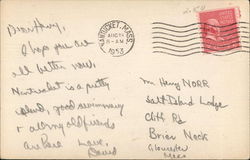 2.50
NANTUCKET, MASS.
AUG 14
8-AM
1953
I hope you are
all better now.
Nantucket is a pretty
island, good swimming
+ all my old friends
are here Love,
David
Mr Henry NORR
Salt Island Lodge
Cliff Rd
Brier Neck
Gloucester
Mass